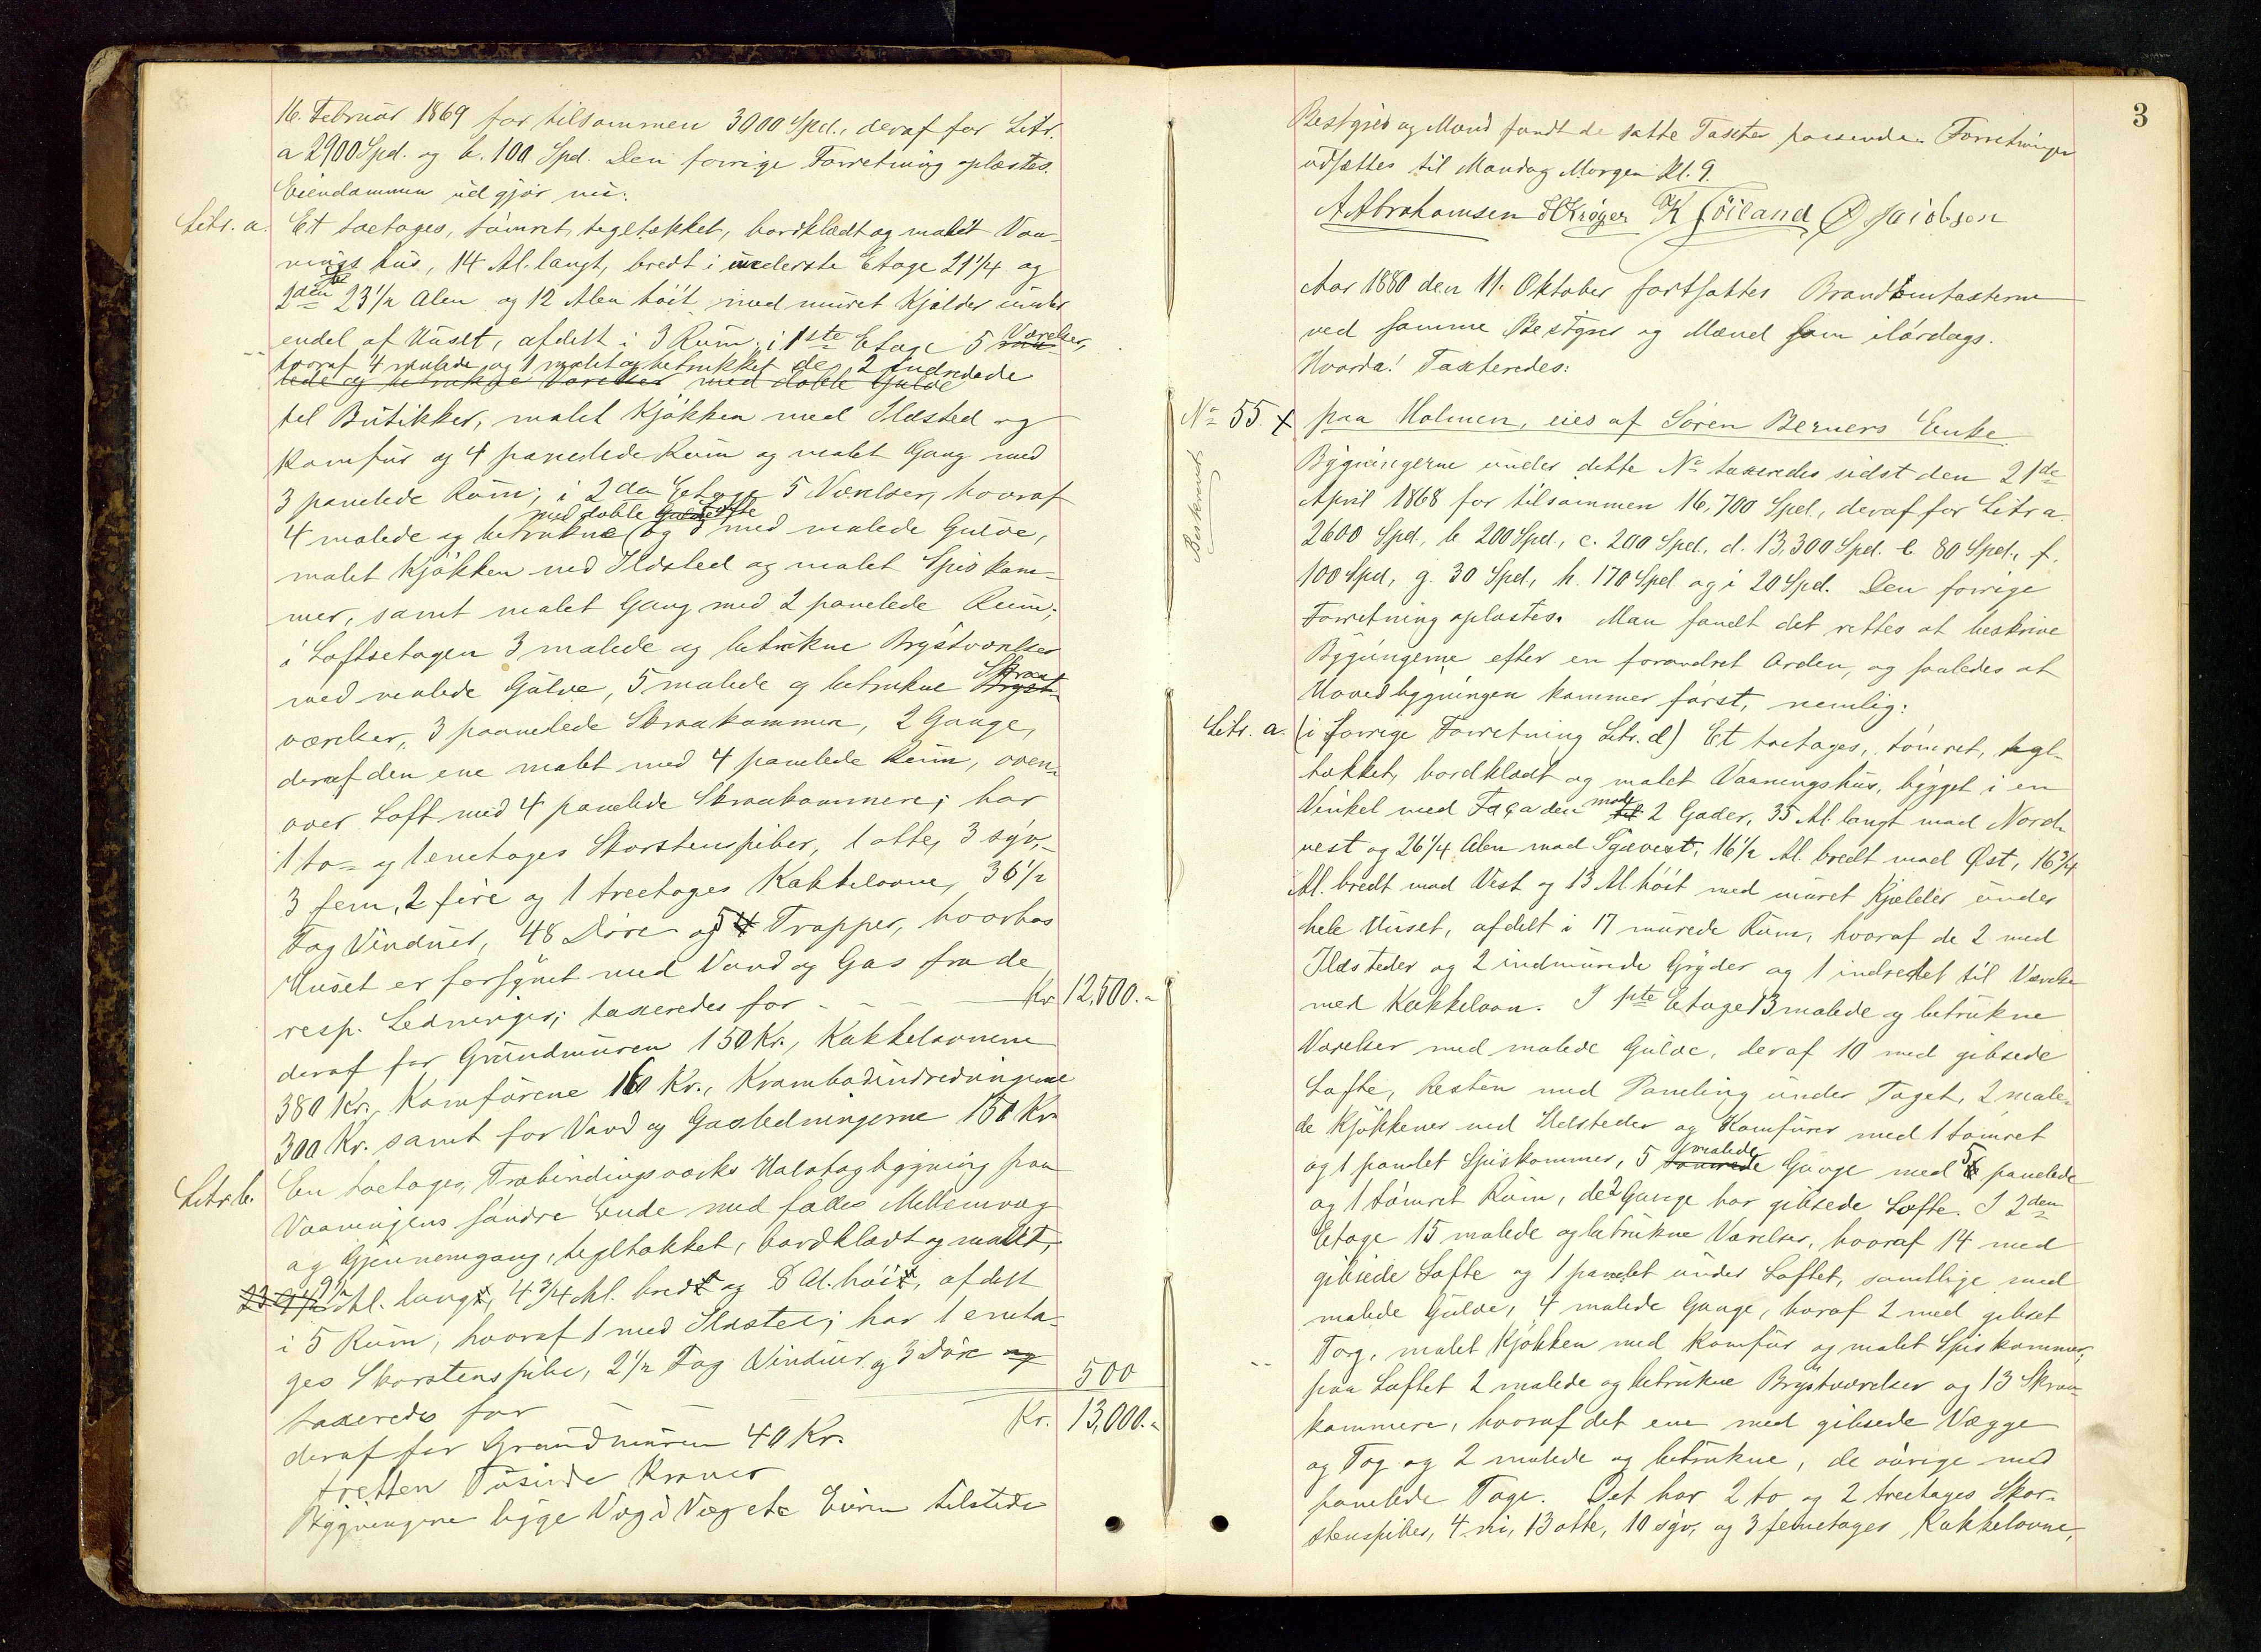 16. Februar 1869 for tilsammen 3000 Spd., deraf for Litr.
a 2900 Spd. og b. 100 Spd. Den forrige Forretning oplæstes.
Eiendommen udgjör nu:
Litr. a. Et toetages, tömret, tegltækket, bordklædt og malet Vaa-
nings hus, 14 Al. langt, bredt i underste Etage 21 1/4 og
2den 23 1/2 Alen og 12 Alen höit med muret Kjælder under
endel af Huset, afdelt i 3 Rum; i 1ste Etage 5 Værelser,
hvoraf 4 malede og 1 malet og betrukket de 2 indredede
lede og betrukne Værelser med doble Gulve
til Butikker, malet Kjökken med Ildsted og
Komfur og 4 panelede Rum og malet Gang med
3 panelede Rum; i 2den Etage 5 Værelser, hvoraf
med doble Gulve Lofte
4 malede og betrukne (og 3 med malede Gulve,
malet Kjökken med Ildsted og malet Spiskam-
mer, samt malet Gang med 2 panelede Rum;
i Loftsetagen 3 malede og betrukne Brystværelser
med malede Gulve, 5 malede og betrukne Bryst Skraa-
værelser, 3 paanelede Skraakammere, 2 Gange,
deraf den ene malet med 4 panelede Rum, oven-
over Loft med 4 panelede Skraakammere; har
1 to- og 1 enetages Skorstenspiber, 1 otte, 3 syv,-
3 fem, 2 fire og 1 treetages Kakkelovne, 36 1/2
Fag Vinduer, 48 Döre og 5 4 Trapper, hvorhos
Huset er forsynet med Vand og Gas fra de
resp. Ledninger; taxeredes for - - - Kr. 12,500.-
deraf for Grundmuren 150 Kr., Kakkelovnene
380 Kr., Komfurene 160 Kr., Krambodindredningerne
300 Kr. samt for Vand og Gasledningerne 150 Kr.
Litr. b. En toetages, Træbindingsværks Halvtagbygning paa
Vaaningens söndre Ende med fælles Mellemvæg
og Gjennemgang, tegltækket, bordklædt og malet,
9 1/2 Al. langt, 4 3/4 Al. bredt og 8 Al. höit, afdelt
i 5 Rum, hvoraf 1 med Ildsted; har 1 eneta-
ges Skorstenspibe, 2 1/2 Fag Vinduer og 3 Döre og
taxeredes for 500
deraf for Grundmuren 40 Kr. Kr. 13,000.-
tretten Tusinde Kroner
Bygningerne ligge Væg i Væg etc Eieren tilstede
3
Bestyrer og Mænd fandt de satte Taxter passende. Forretningen
udsættes til Mandag Morgen Kl. 9.
A Abrahamsen H Kröyer K Göiland O Jacobsen
Aar 1880 den 11. Oktober fortsattes Brandomtaxterne
ved samme Bestyrer og Mænd som ilördags.
Hvorda! Taxteredes:
No 55. x paa Holmen, eies af Sören Berners Enke
Beskrevet
Bygningerne under dette No taxeredes sidst den 21de
April 1868 for tilsammen 16,700 Spd., deraf for Litr a.
2600 Spd., b 200 Spd., c. 200 Spd., d. 13,300 Spd. e. 80 Spd., f.
100 Spd, g. 30 Spd, h. 170 Spd og i 20 Spd. Den forrige
Forretning oplæstes. Man fandt det rettes at beskrive
Bygningerne efter en forandret Orden, og saaledes at
Hovedbygningen kommer först, nemlig:
Litr. a. (i forrige Forretning Litr. d) Et toetages, tömret, tegl-
tækket, bordklædt og malet Vaaningshus, bygget i en
Vinkel med Façaden mod til 2 Gader, 35 Al. langt mod Nord-
vest og 26 1/4 Alen mod Sydvest, 16 1/2 Al. bredt mod Øst, 16 3/4
Al. bredt mod Vest og 13 Al. höit med muret Kjælder under
hele Huset, afdelt i 17 murede Rum, hvoraf de 2 med
Ildsteder og 2 indmurede Gryder og 1 indredet til Værelse
med Kakkelovn. I 1ste Etage 13 malede og betrukne
Værelser med malede Gulve, deraf 10 med gibsede
Lofte, Resten med Paneling under Taget, 2 male-
de Kjökkener med Ildsteder og Komfurer med 1 tömret
og 1 panelet Spiskammer, 5 malede Gange med 5 panelede
og 1 tömret Rum, de 2 Gange har gibsede Lofte. I 2den
Etage 15 malede og betrukne Værelser, hvoraf 14 med
gibsede Lofte og 1 panelet under Loftet, samtlige med
malede Gulve, 4 malede Gange, hvoraf 2 med gibset
Tag, malet Kjökken med Komfur og malet Spiskammer;
paa Loftet 2 malede og betrukne Brystværelser og 13 Skraa-
kammere, hvoraf det ene med gibsede Vægge
og Tag og 2 malede og betrukne, de övrige med
panelede Tage. Det har 2 to og 2 treetages Skor-
stenspiber, 4 ni, 13 otte, 10 syv, og 3 femetages Kakkelovne,